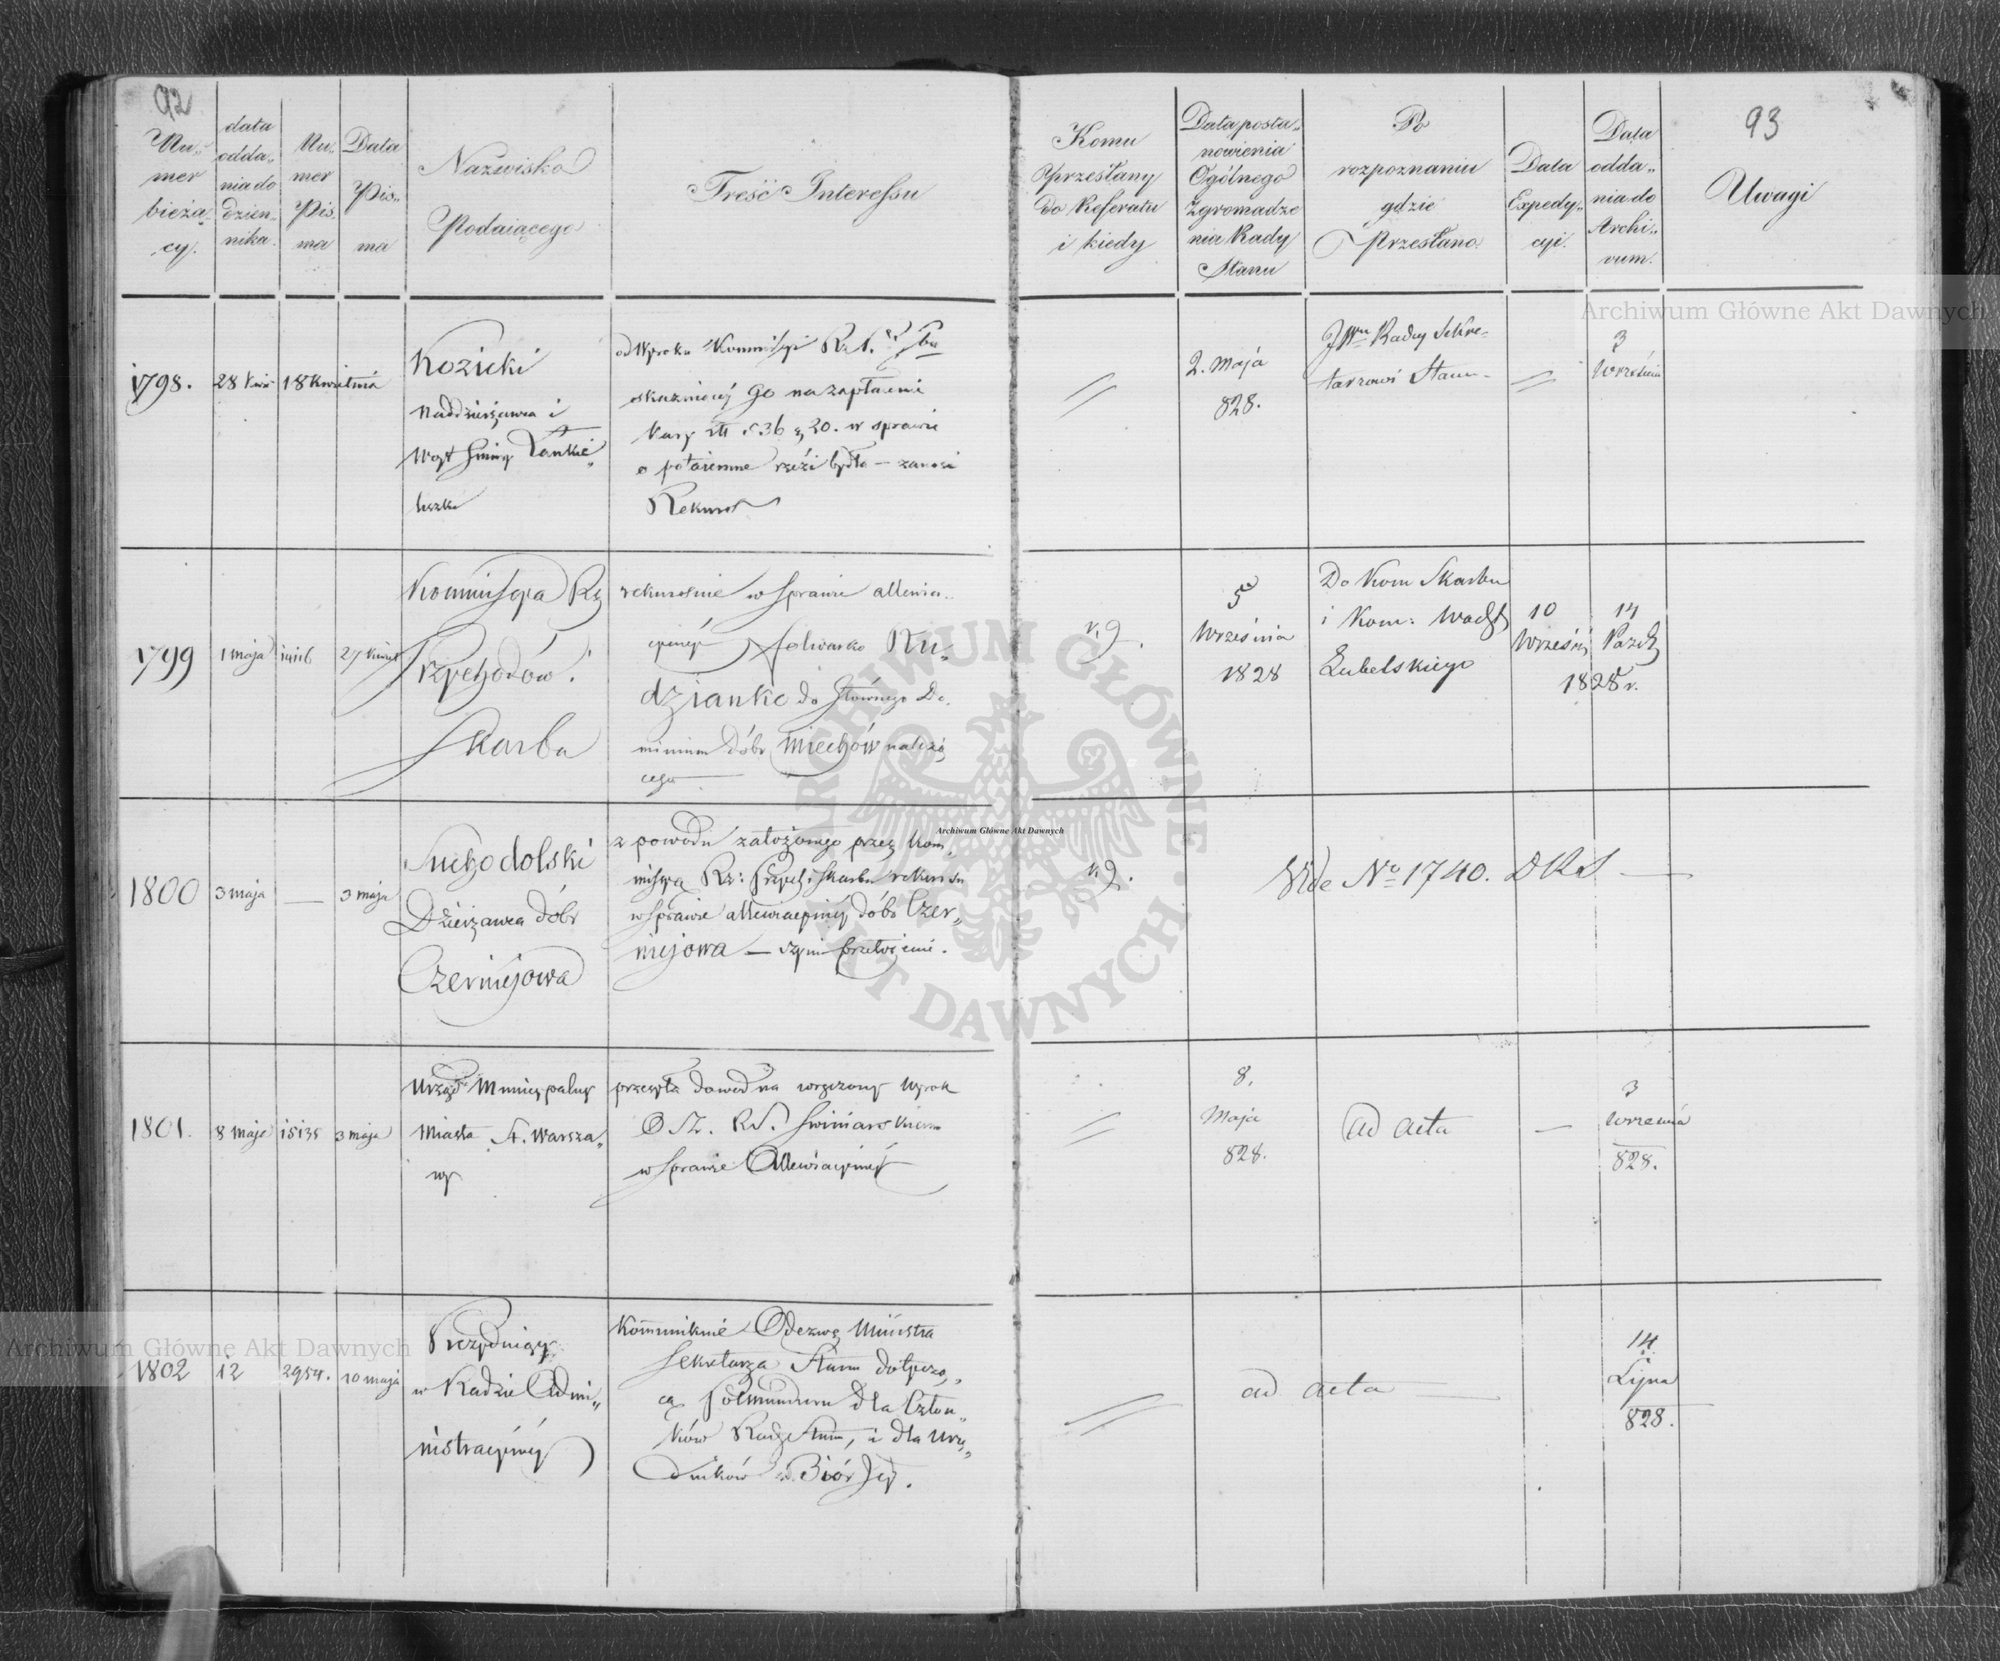 92
Nu-
mer
bieżą-
cy.
data
odda-
nia do
dzien-
nika.
Nu-
mer
Pis-
ma
Data
Pis-
ma
Nazwisko
Podaiącego
Treść Interessu
Komu
Przesłany
do Referatu
i kiedy
Data posta-
nowienia
Ogólnego
Zgromadze
nia Rady
Stanu
Po
rozpoznaniu
gdzie
Przesłano
Data
Expedy-
cyi.
Data
odda-
nia do
Archi-
vum.
93
Uwagi
1798.
28 Kwie
18 Kwietnia
Kozicki
Naddzierżawca i
Woyt Gminy
od Wyroku Kommissyi
skazuiącey Go na zapłacenie
Kary 36 20. w sprawie
o potaiemne rzezi bydła — zanosi
Rekurs
2. Maja
828.
Rady Sekre-
tarzowi Stanu
3
Września
1799
1 maja
27 Kwiet
Kommissya Rz
Przychodów i
Skarbu
w sprawie allewia-
cyinéj folwarku Ru-
dzianko do Głównego Do-
minium dóbr Miechów należą
cego
5
Września
1828
Do Kom Skarbu
i Kom: Wodz
Lubelskiego
10
Wrześni
14
Paźd
1828 r.
1800
3 maja
—
3 maja
Suchodolski
Dzierżawca dóbr
Czerniejowa
z powodu założonego przez Kom-
missyą Rz: Przych: i Skarbu rekursu
w sprawie allewiacyinéj dóbr Czer-
niejowa — czyni przełożenie.
Vide No 1740. DKS —
1801.
8 maja
15135
3 maja
Urząd Municypalny
Miasta St. Warsza-
wy
przesyła dowód na wręczony Wyrok
w sprawie Allewiacyinéj
8.
Maja
828.
ad acta
—
3
Września
828.
1802
12
2954.
10 maja
Prezyduiący
w Radzie Admi-
nistracyinéj
Kommunikuie Odezwę Ministra
Sekretarza Stanu dotyczą-
cą półmunduru dla Człon-
ków Rady Stanu, i dla Urzę-
dników w Biór Jéj.
ad acta
14
Lipca
828.
Archiwum Główne Akt Dawnych
Archiwum Główne Akt Dawnych
Archiwum Główne Akt Dawnych
ARCHIWUM GŁÓWNE AKT DAWNYCH